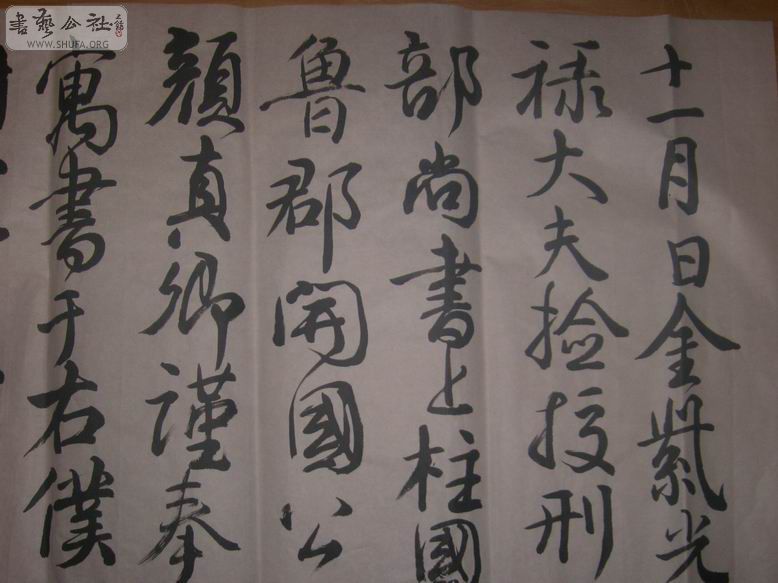 十一月日金紫光
禄大夫撿挍刑
部尚書上柱國
魯郡開國公
顔真卿謹奉
寓書于右僕
書藝公社
WWW.SHUFA.ORG